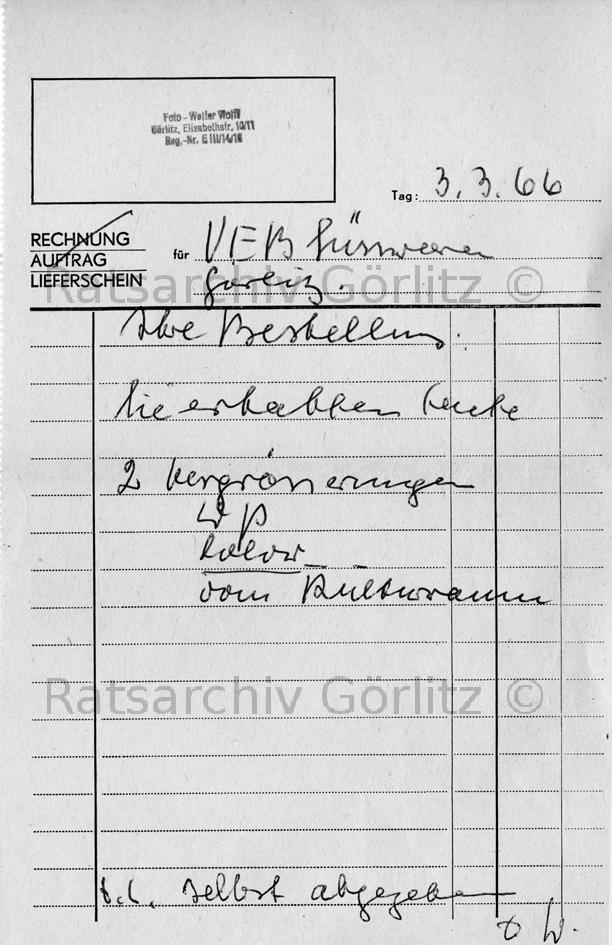 Foto - Walter Wolff
Görlitz, Elisabethstr. 10/11
Reg.-Nr. E III/14/16
Tag: 3.3.66
RECHNUNG
AUFTRAG
LIEFERSCHEIN
für VEB Süsswaren
Görlitz.
Ratsarchiv Görlitz ©
Ihre Bestellung.
Sie erhalten heute
2 Vergrösserungen
W P
Color
vom Kulturraum
Ratsarchiv Görlitz ©
selbst abgegeben
W.